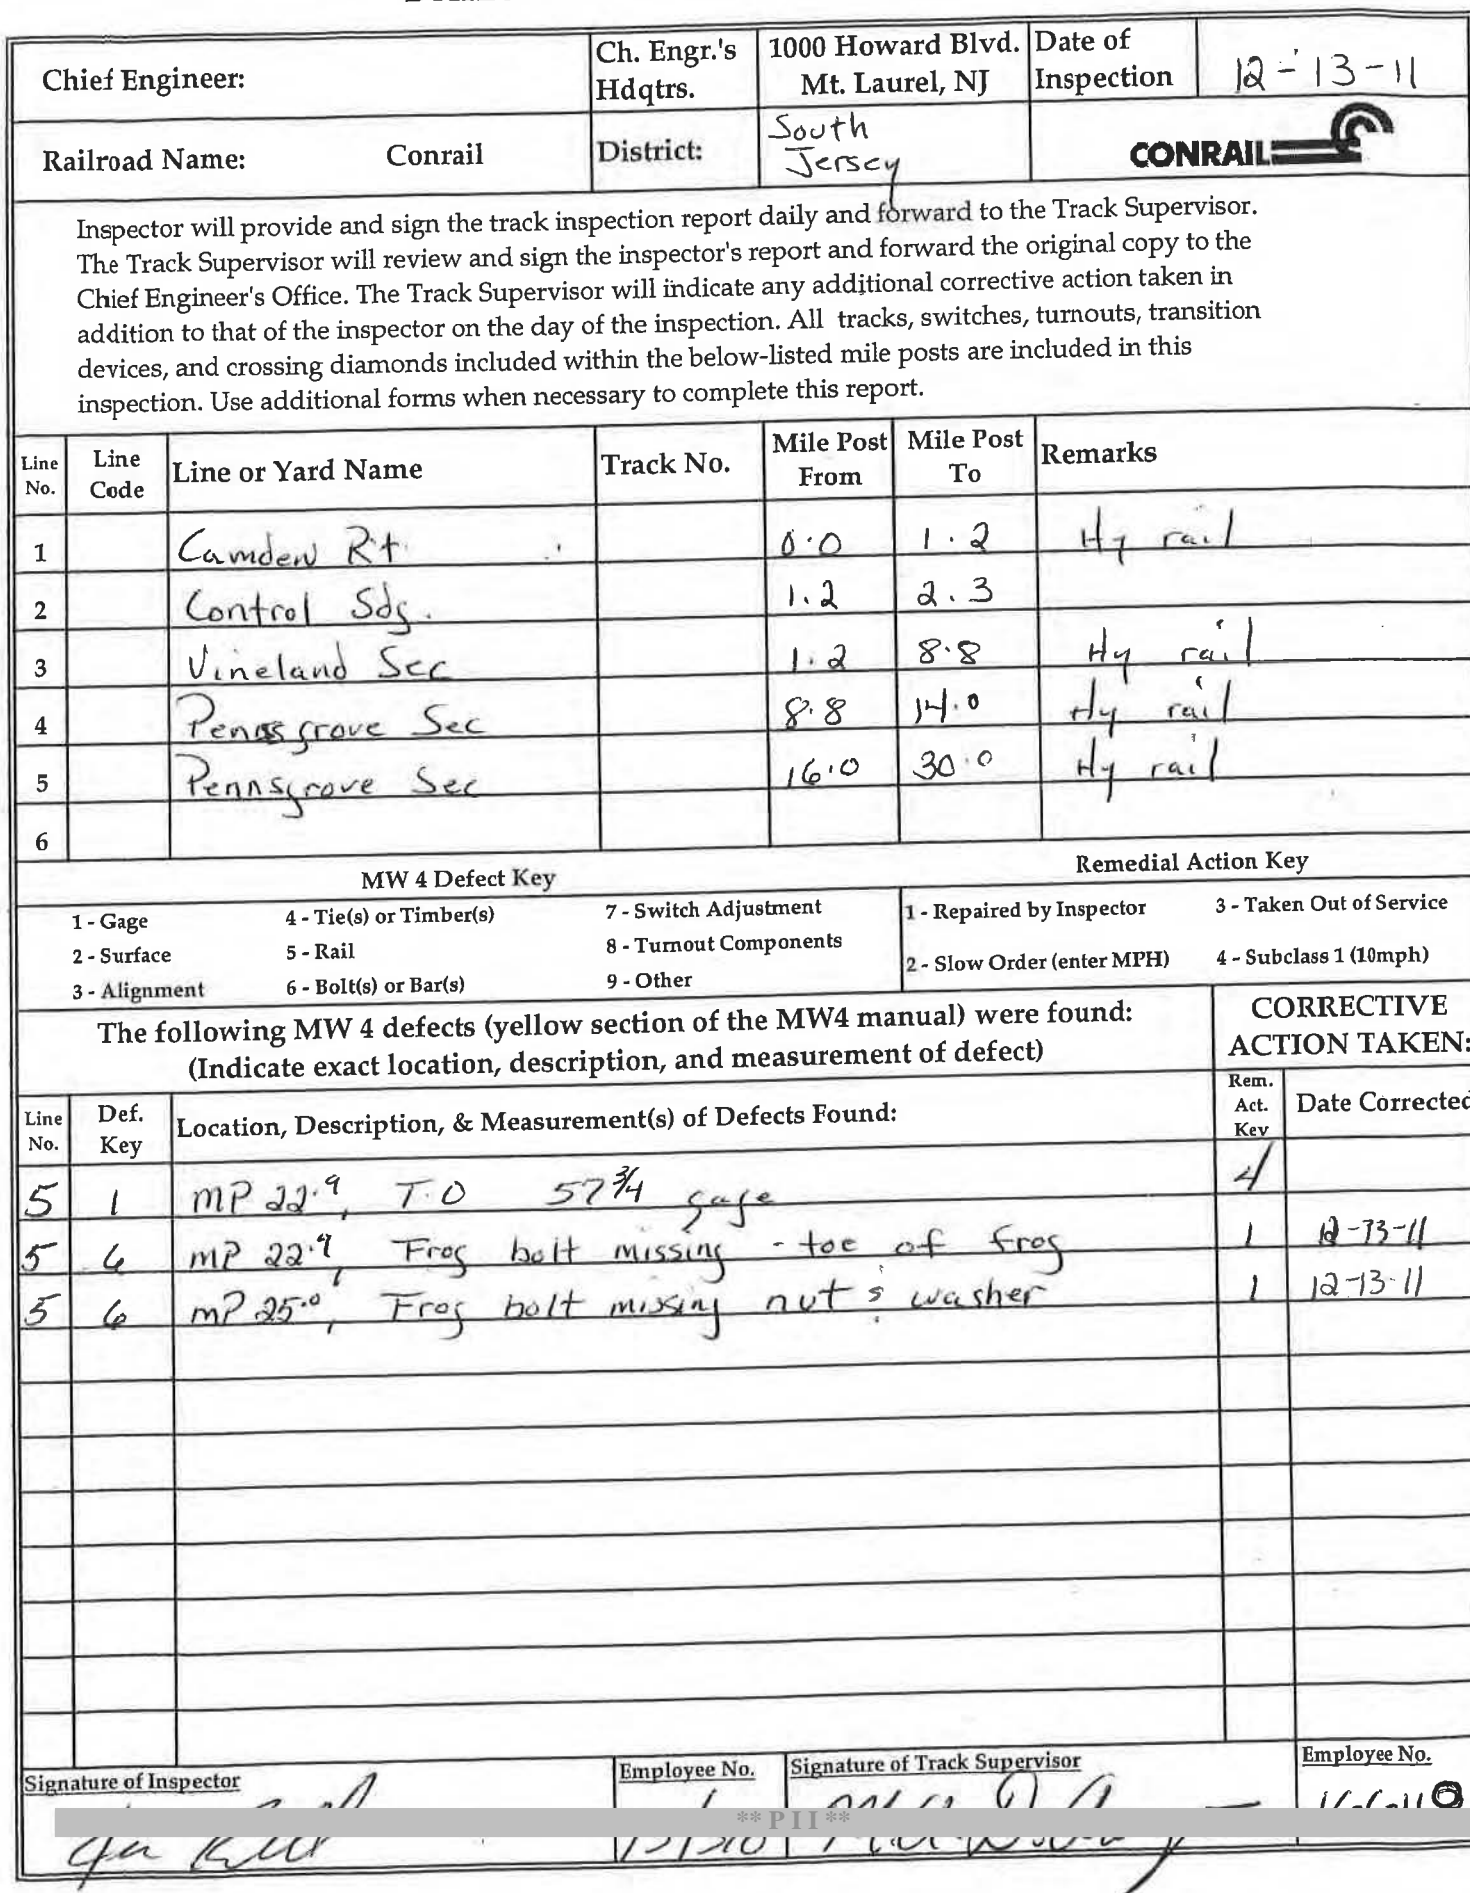 Chief Engineer:
Ch. Engr.'s Hdqtrs.
1000 Howard Blvd. Mt. Laurel, NJ
Date of Inspection
12-13-11
Railroad Name: Conrail
District:
South Jersey
CONRAIL
Inspector will provide and sign the track inspection report daily and forward to the Track Supervisor.
The Track Supervisor will review and sign the inspector's report and forward the original copy to the
Chief Engineer's Office. The Track Supervisor will indicate any additional corrective action taken in
addition to that of the inspector on the day of the inspection. All tracks, switches, turnouts, transition
devices, and crossing diamonds included within the below-listed mile posts are included in this
inspection. Use additional forms when necessary to complete this report.
Line No. Line Code Line or Yard Name Track No. Mile Post From Mile Post To Remarks
1 Camden Rt. 0.0 1.2 Hy rail
2 Control Sdg. 1.2 2.3
3 Vineland Sec 1.2 8.8 Hy rail
4 Pennsgrove Sec 8.8 14.0 Hy rail
5 Pennsgrove Sec 16.0 30.0 Hy rail
6
MW 4 Defect Key
Remedial Action Key
1 - Gage 4 - Tie(s) or Timber(s) 7 - Switch Adjustment 1 - Repaired by Inspector 3 - Taken Out of Service
2 - Surface 5 - Rail 8 - Turnout Components 2 - Slow Order (enter MPH) 4 - Subclass 1 (10mph)
3 - Alignment 6 - Bolt(s) or Bar(s) 9 - Other
The following MW 4 defects (yellow section of the MW4 manual) were found:
(Indicate exact location, description, and measurement of defect)
CORRECTIVE
ACTION TAKEN:
Line No. Def. Key Location, Description, & Measurement(s) of Defects Found: Rem. Act. Key Date Corrected
5 1 MP 22.9, T.O 57 3/4 gage 4
5 6 MP 22.9, Frog bolt missing - toe of frog 1 12-13-11
5 6 MP 25.0, Frog bolt missing nut & washer 1 12-13-11
Signature of Inspector Employee No. Signature of Track Supervisor Employee No.
** P I I **